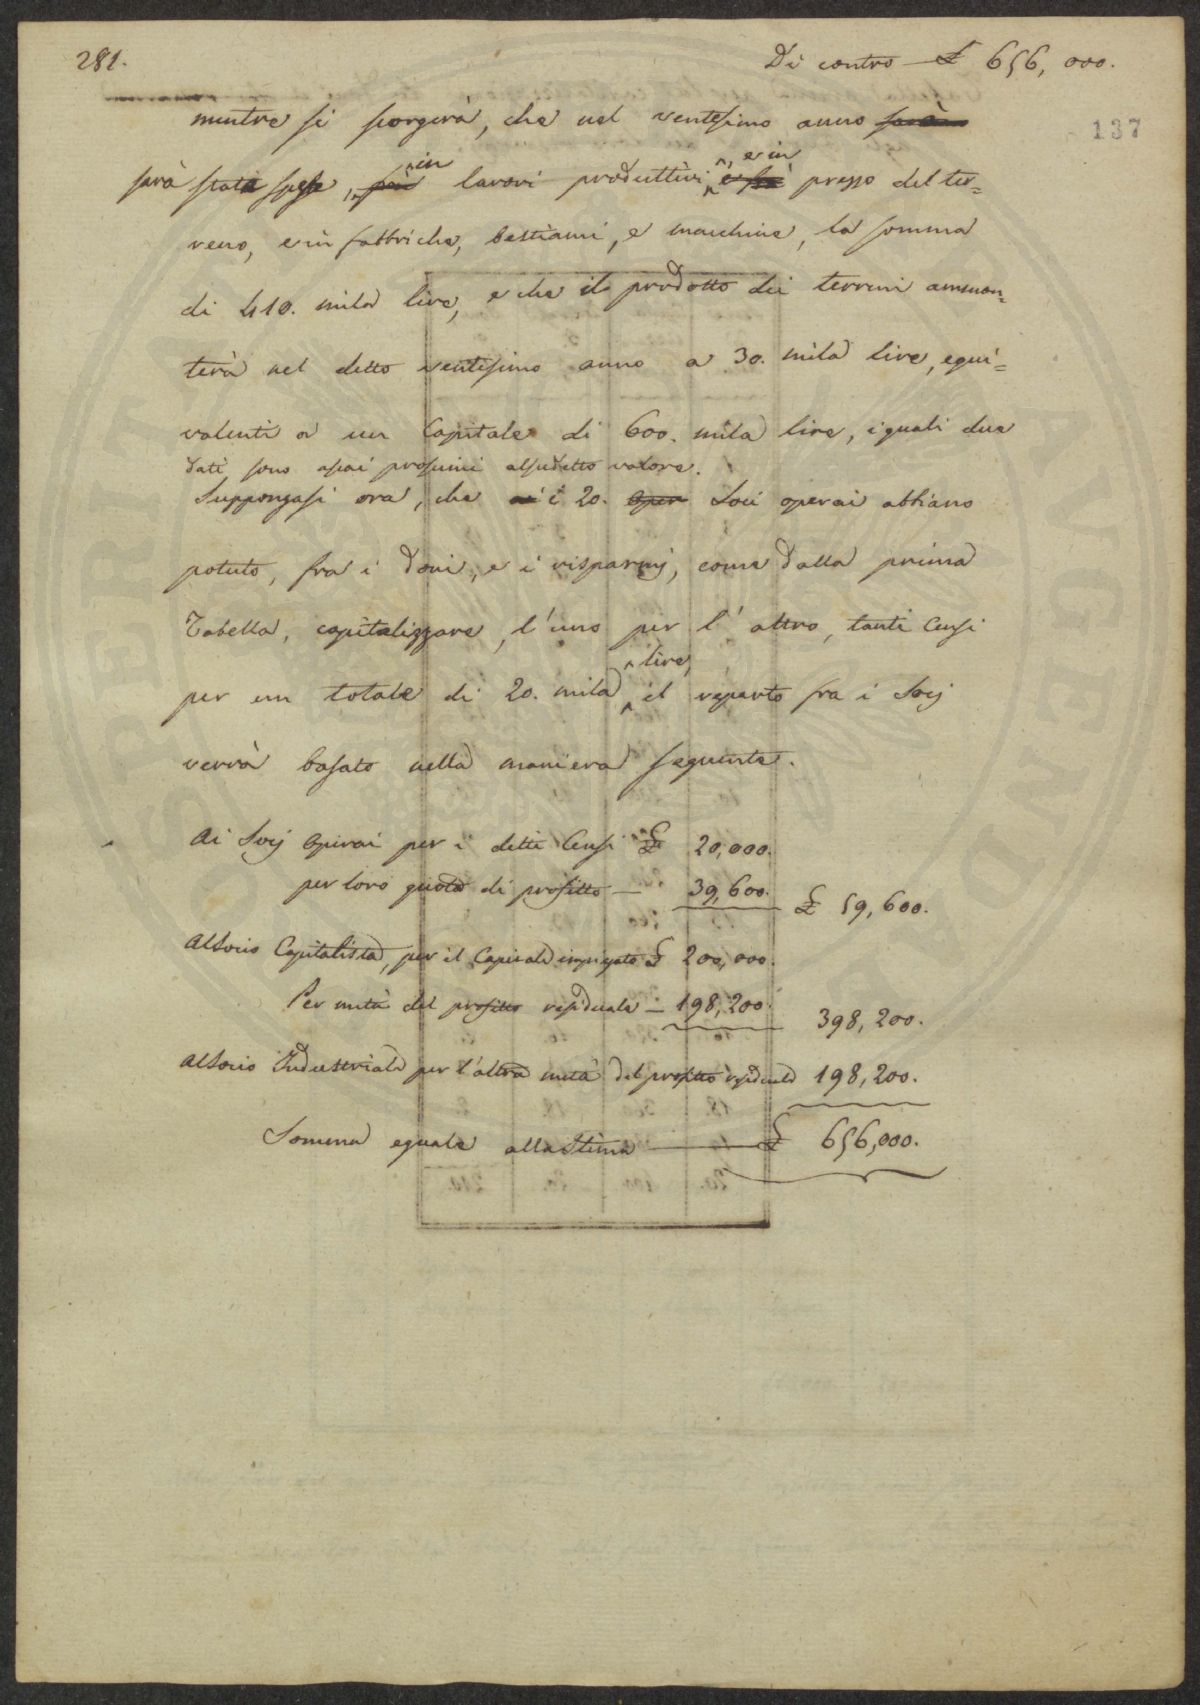 281.
Di contro — £ 656,000.
137
mentre si scorgerà, che nel ventesimo anno sarà
sarà stata spesa, in lavori produttivi, e in prezzo del ter=
reno, e in fabbriche, bestiami, e macchine, la somma
di 410. mila lire, e che il prodotto dei terreni ammon=
terà nel detto ventesimo anno a 30. mila lire, equi=
valenti a un Capitale di 600. mila lire, i quali due
dati sono assai prossimi al sudetto valore.
Suppongasi ora, che i 20. Soci operai abbiano
potuto, fra i doni, e i risparmj, come dalla prima
Tabella, capitalizzare, l'uno per l'altro, tanti Censi
per un totale di 20. mila lire, il reparto fra i Socj
verrà basato nella maniera seguente.
Ai Socj operai per i detti Censi £ 20,000.
per loro quota di profitto — 39,600. £ 59,600.
Al Socio Capitalista, per il Capitale impiegato £ 200,000.
Per metà del profitto residuale — 198,200. 398,200.
Al Socio Industriale per l'altra metà del profitto residuale 198,200.
Somma eguale alla Stima — £ 656,000.